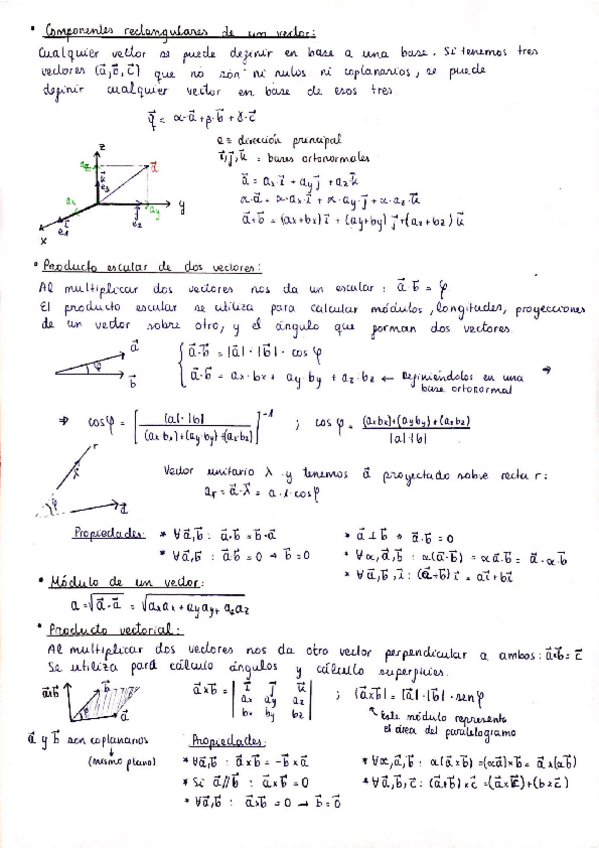 • Componentes rectangulares de un vector:
Cualquier vector se puede definir en base a una base. Si tenemos tres
vectores (a⃗, b⃗, c⃗) que no son ni nulos ni coplanarios, se puede
definir cualquier vector en base de esos tres
q⃗ = α·a⃗ + β·b⃗ + γ·c⃗
e = dirección principal
i⃗, j⃗, k⃗ = bases ortonormales
a⃗ = ax·i⃗ + ay·j⃗ + az·k⃗
α·a⃗ = α·ax·i⃗ + α·ay·j⃗ + α·az·k⃗
a⃗+b⃗ = (ax+bx)i⃗ + (ay+by)j⃗ + (az+bz)k⃗
z
az
a⃗
k⃗
e3
ax
i⃗
e1
j⃗
e2
ay
y
x
• Producto escalar de dos vectores:
Al multiplicar dos vectores nos da un escalar: a⃗·b⃗ = φ
El producto escalar se utiliza para calcular módulos, longitudes, proyecciones
de un vector sobre otro, y el ángulo que forman dos vectores.
a⃗
φ
b⃗
a⃗·b⃗ = |a⃗|·|b⃗|·cos φ
a⃗·b⃗ = ax·bx + ay·by + az·bz ← Definiéndolos en una ⇒
base ortonormal
⇒ cosφ = [|a|·|b| / (ax bx)+(ay by)+(az bz)]⁻¹ ; cosφ = (ax bx)+(ay by)+(az bz) / |a|·|b|
r
λ
φ
a⃗
Vector unitario λ y tenemos a⃗ proyectado sobre recta r:
ar = a⃗·λ⃗ = a·1·cosφ
Propiedades: * ∀a⃗,b⃗ : a⃗·b⃗ = b⃗·a⃗
* ∀a⃗,b⃗ : a⃗·b⃗ = 0 → b⃗ = 0
* a⃗ ⊥ b⃗ → a⃗·b⃗ = 0
* ∀α,a⃗,b⃗ : α(a⃗·b⃗) = αa⃗·b⃗ = a⃗·αb⃗
* ∀a⃗,b⃗,i⃗ : (a⃗+b⃗)i⃗ = ai⃗ + bi⃗
• Módulo de un vector:
a = √a⃗·a⃗ = √ax ax + ay ay + az az
• Producto vectorial:
Al multiplicar dos vectores nos da otro vector perpendicular a ambos: a⃗×b⃗ = c⃗
Se utiliza para cálculo ángulos y cálculo superficies.
a⃗×b⃗
b⃗
φ
a⃗
a⃗×b⃗ = | i⃗ j⃗ k⃗ | ; |a⃗×b⃗| = |a⃗|·|b⃗|·senφ
ax ay az
bx by bz
Este módulo representa
el área del paralelogramo
a⃗ y b⃗ son coplanarios
(mismo plano)
Propiedades:
* ∀a⃗,b⃗ : a⃗×b⃗ = -b⃗×a⃗
* Si a⃗//b⃗ : a⃗×b⃗ = 0
* ∀a⃗,b⃗ : a⃗×b⃗ = 0 → b⃗ = 0
* ∀α,a⃗,b⃗ : α(a⃗×b⃗) = (αa⃗)×b⃗ = a⃗×(αb⃗)
* ∀a⃗,b⃗,c⃗ : (a⃗+b⃗)×c⃗ = (a⃗×c⃗)+(b×c⃗)